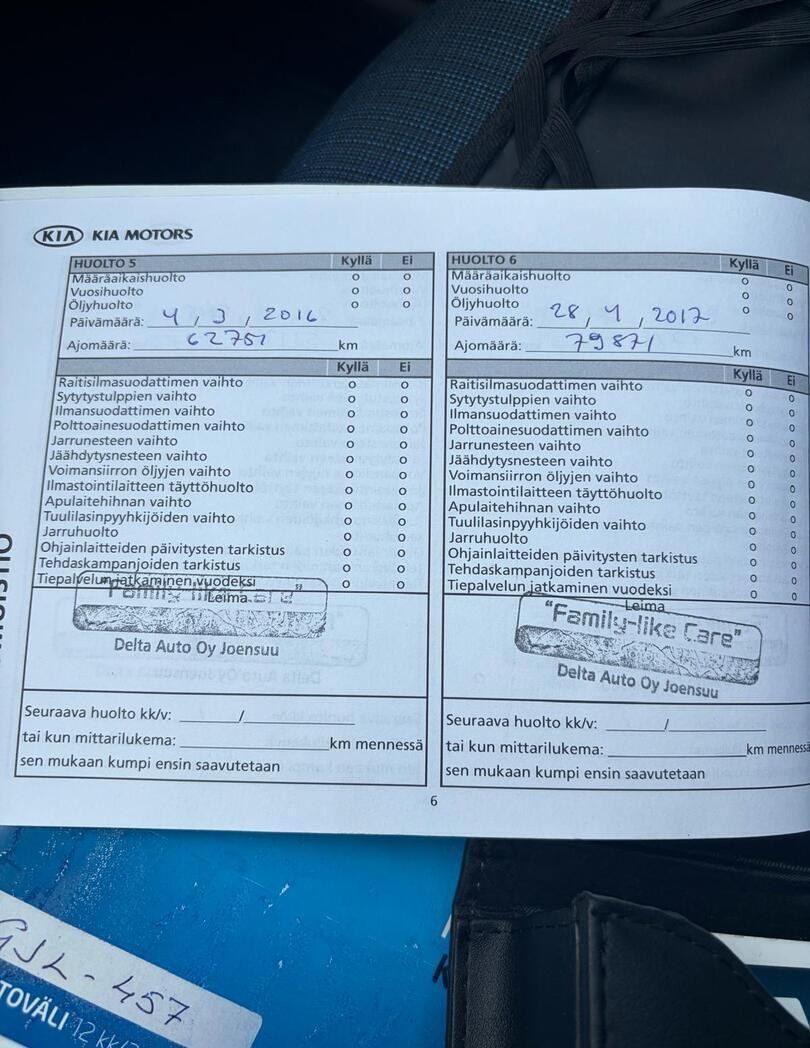 KIA KIA MOTORS
HUOLTO 5 Kyllä Ei
Määräaikaishuolto o o
Vuosihuolto o o
Öljyhuolto o o
Päivämäärä: 4, 3, 2016
Ajomäärä: 62751 km
Kyllä Ei
Raitisilmasuodattimen vaihto o o
Sytytystulppien vaihto o o
Ilmansuodattimen vaihto o o
Polttoainesuodattimen vaihto o o
Jarrunesteen vaihto o o
Jäähdytysnesteen vaihto o o
Voimansiirron öljyjen vaihto o o
Ilmastointilaitteen täyttöhuolto o o
Apulaitehihnan vaihto o o
Tuulilasinpyyhkijöiden vaihto o o
Jarruhuolto o o
Ohjainlaitteiden päivitysten tarkistus o o
Tehdaskampanjoiden tarkistus o o
Tiepalvelun jatkaminen vuodeksi o o
Leima
"Family-like Care"
Delta Auto Oy Joensuu
Seuraava huolto kk/v: ______/__________
tai kun mittarilukema: ______________ km mennessä
sen mukaan kumpi ensin saavutetaan
HUOLTO 6 Kyllä Ei
Määräaikaishuolto o o
Vuosihuolto o o
Öljyhuolto o o
Päivämäärä: 28, 4, 2017
Ajomäärä: 79871 km
Kyllä Ei
Raitisilmasuodattimen vaihto o o
Sytytystulppien vaihto o o
Ilmansuodattimen vaihto o o
Polttoainesuodattimen vaihto o o
Jarrunesteen vaihto o o
Jäähdytysnesteen vaihto o o
Voimansiirron öljyjen vaihto o o
Ilmastointilaitteen täyttöhuolto o o
Apulaitehihnan vaihto o o
Tuulilasinpyyhkijöiden vaihto o o
Jarruhuolto o o
Ohjainlaitteiden päivitysten tarkistus o o
Tehdaskampanjoiden tarkistus o o
Tiepalvelun jatkaminen vuodeksi o o
Leima
"Family-like Care"
Delta Auto Oy Joensuu
Seuraava huolto kk/v: ______/__________
tai kun mittarilukema: ______________ km mennessä
sen mukaan kumpi ensin saavutetaan
6
GJL-457
TOVÄLI 12 kk/